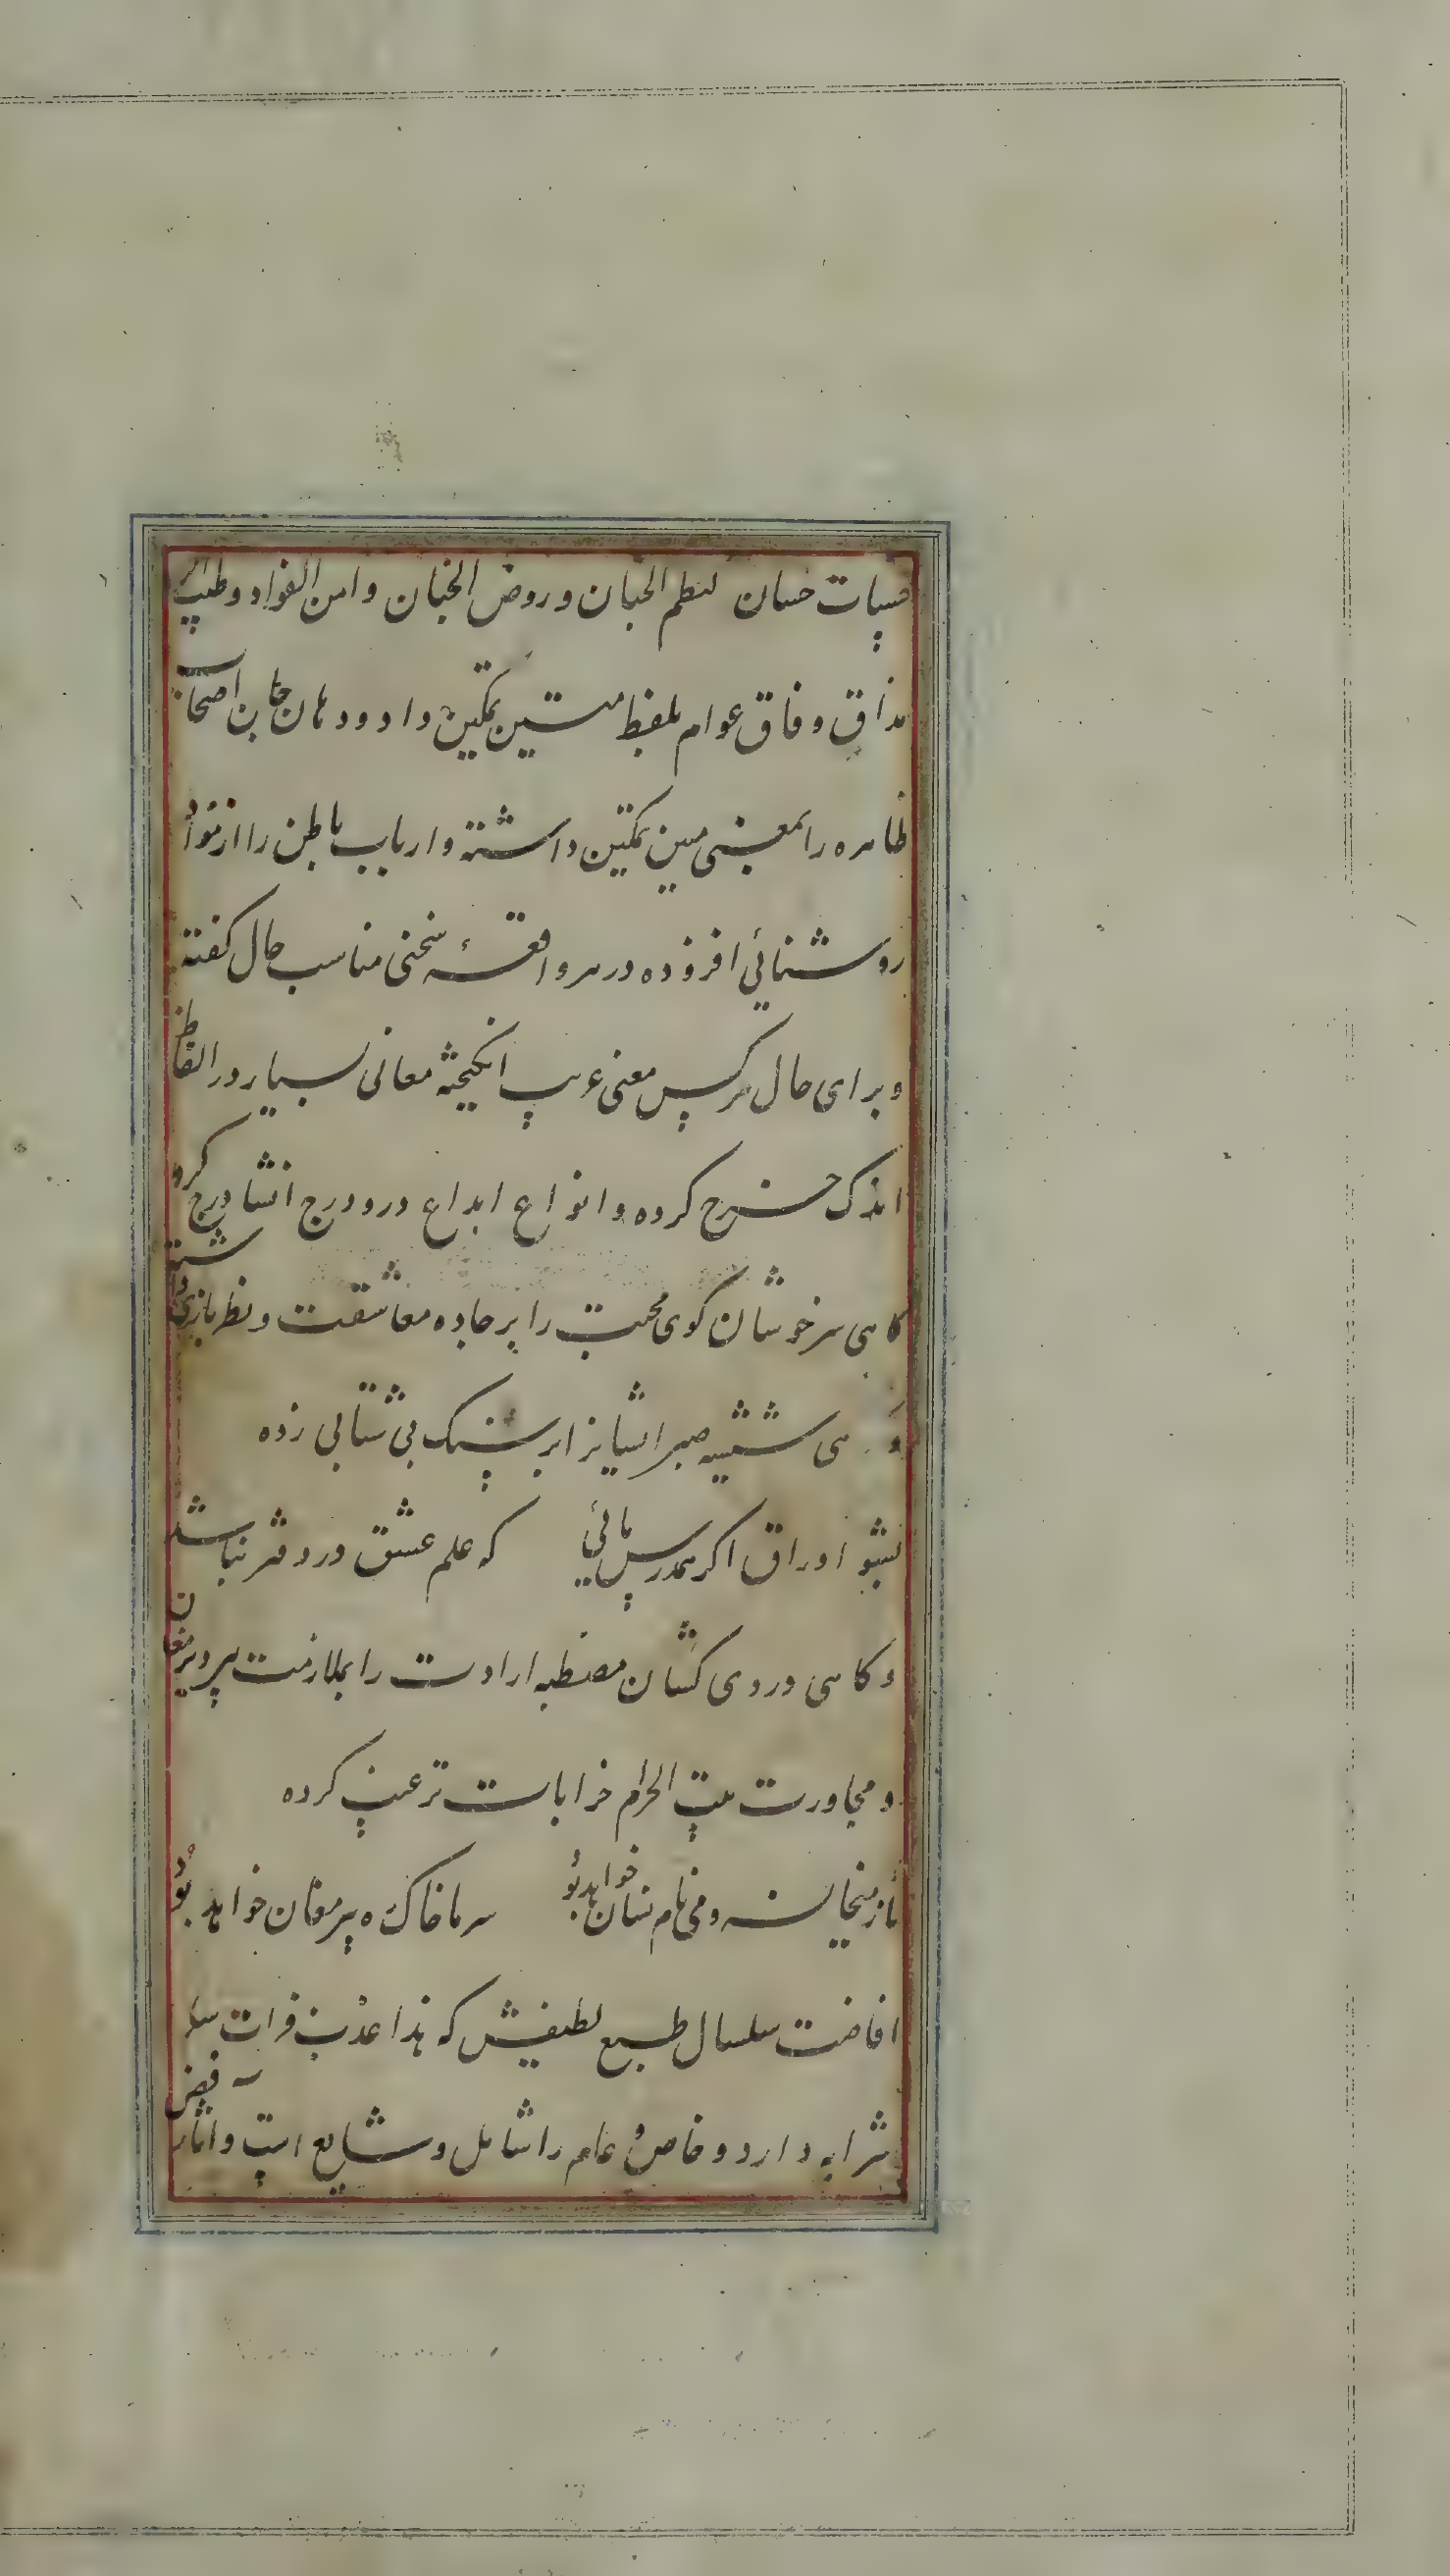 حسیات حسان لنظم الجنان وروض الجنان وامن الفواد وطیب الر
مذاق وفاق عوام بلفظ متین نمکین داد و دهان جان اصحاب
ظاهره را بمعنی مبین تمکین داشته و ارباب باطن را ازو مواد
روشنائی افزوده در هر واقعهٔ سخنی مناسب حال گفته
و برای حال هر کس معنی غریب انگیخته معانی بسیار در الفاظ
اندک خرج کرده و انواع ابداع در و درج انشا درج کرد
کاهی سرخوشان کوی محبت را بر جاده معاشقت و نظر بازی داشته
و هی شیشه صبر ایشانرا بر سنک بی ثباتی زده
بشو اوراق اکر همدرس مائی که علم عشق در دفتر نباشد
و کاهی دردی کشان مصطبه ارادت را بملازمت پیر دیر مغان
و مجاورت بیت الحرام خرابات ترغیب کرده
تا ز میخانه و می نام و نشان خواهد بود سر ما خاک ره پیر مغان خواهد بود
افاضت سلسال طبع لطیفش که هذا عذب فرات سایغ
شرابه دارد و خاص و عام را شامل و شایع است و اثار فیض